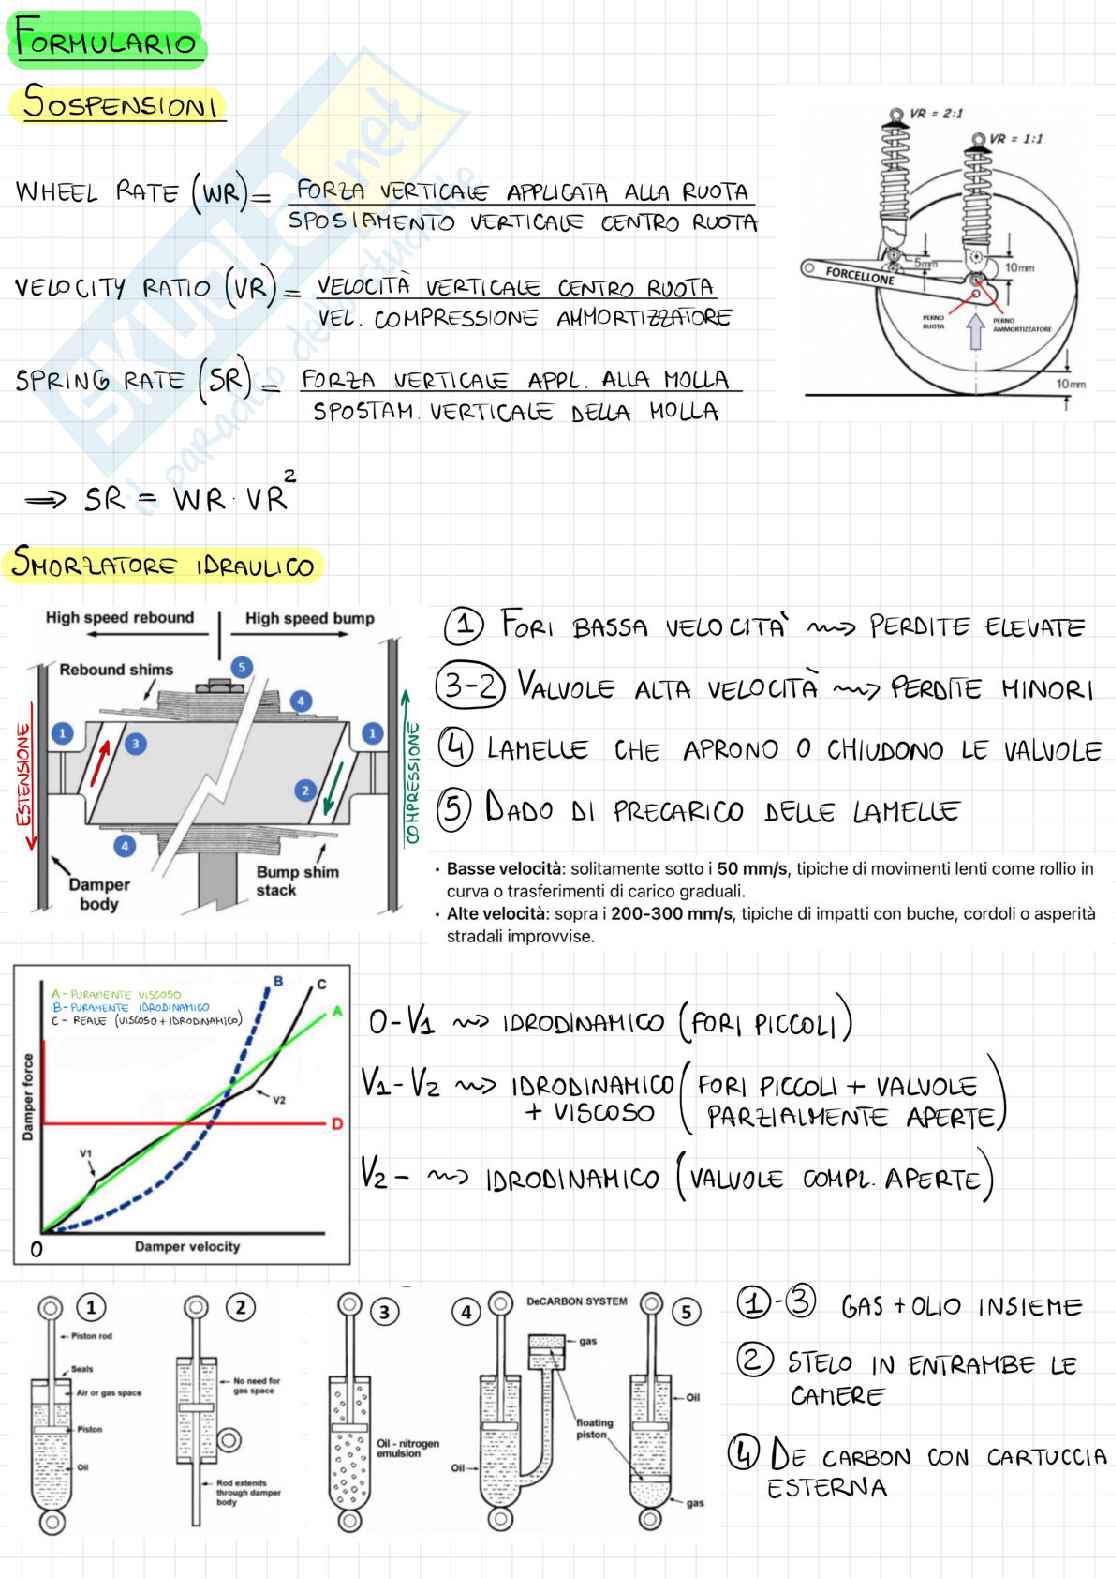 FORMULARIO
SOSPENSIONI
WHEEL RATE (WR) = FORZA VERTICALE APPLICATA ALLA RUOTA
SPOSTAMENTO VERTICALE CENTRO RUOTA
VELOCITY RATIO (VR) = VELOCITÀ VERTICALE CENTRO RUOTA
VEL. COMPRESSIONE AMMORTIZZATORE
SPRING RATE (SR) = FORZA VERTICALE APPL. ALLA MOLLA
SPOSTAM. VERTICALE DELLA MOLLA
⇒ SR = WR · VR²
VR = 2:1
VR = 1:1
5mm
10mm
FORCELLONE
PERNO RUOTA
PERNO AMMORTIZZATORE
10mm
SKUOLA.net
il paradiso dello studente
SMORZATORE IDRAULICO
High speed rebound
High speed bump
Rebound shims
5
4
1
3
1
2
4
ESTENSIONE
COMPRESSIONE
Damper body
Bump shim stack
① FORI BASSA VELOCITÀ ⇝ PERDITE ELEVATE
3-2 VALVOLE ALTA VELOCITÀ ⇝ PERDITE MINORI
④ LAMELLE CHE APRONO O CHIUDONO LE VALVOLE
⑤ DADO DI PRECARICO DELLE LAMELLE
· Basse velocità: solitamente sotto i 50 mm/s, tipiche di movimenti lenti come rollio in
curva o trasferimenti di carico graduali.
· Alte velocità: sopra i 200-300 mm/s, tipiche di impatti con buche, cordoli o asperità
stradali improvvise.
A - PURAMENTE VISCOSO
B - PURAMENTE IDRODINAMICO
C - REALE (VISCOSO + IDRODINAMICO)
B
C
A
V2
D
V1
Damper force
0
Damper velocity
0-V1 ⇝ IDRODINAMICO (FORI PICCOLI)
V1-V2 ⇝ IDRODINAMICO (FORI PICCOLI + VALVOLE
+ VISCOSO PARZIALMENTE APERTE)
V2- ⇝ IDRODINAMICO (VALVOLE COMPL. APERTE)
①
Piston rod
Seals
Air or gas space
Piston
Oil
②
No need for gas space
Rod extends through damper body
③
Oil - nitrogen emulsion
④
DeCARBON SYSTEM
gas
floating piston
Oil
⑤
Oil
gas
①-③ GAS + OLIO INSIEME
② STELO IN ENTRAMBE LE
CAMERE
④ DE CARBON CON CARTUCCIA
ESTERNA